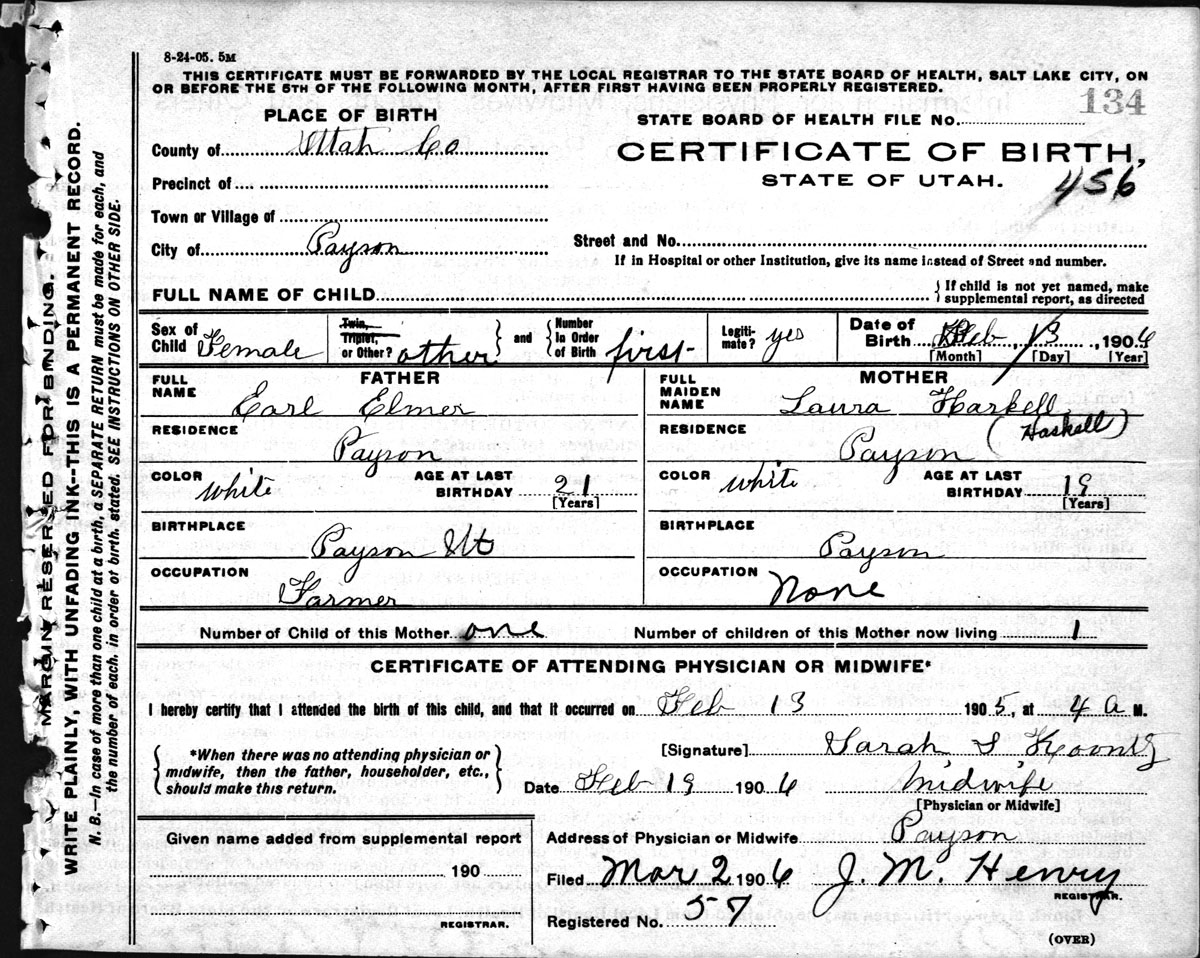 8-24-05. 5M
THIS CERTIFICATE MUST BE FORWARDED BY THE LOCAL REGISTRAR TO THE STATE BOARD OF HEALTH, SALT LAKE CITY, ON
OR BEFORE THE 5TH OF THE FOLLOWING MONTH, AFTER FIRST HAVING BEEN PROPERLY REGISTERED.
134
PLACE OF BIRTH
STATE BOARD OF HEALTH FILE No.
County of Utah Co
CERTIFICATE OF BIRTH,
STATE OF UTAH.
456
Precinct of
Town or Village of
City of Payson
Street and No.
If in Hospital or other Institution, give its name instead of Street and number.
FULL NAME OF CHILD
{ If child is not yet named, make
supplemental report, as directed
Sex of Child Female
Twin, Triplet, or Other? other
and
Number in Order of Birth first
Legiti-mate? yes
Date of Birth Feb 13, 1906
[Month] [Day] [Year]
FATHER
FULL NAME Earl Elmer
RESIDENCE Payson
COLOR White
AGE AT LAST BIRTHDAY 21 [Years]
BIRTHPLACE Payson Ut
OCCUPATION Farmer
MOTHER
FULL MAIDEN NAME Laura Harkell
(Haskell)
RESIDENCE Payson
COLOR White
AGE AT LAST BIRTHDAY 19 [Years]
BIRTHPLACE Payson
OCCUPATION None
Number of Child of this Mother one
Number of children of this Mother now living 1
CERTIFICATE OF ATTENDING PHYSICIAN OR MIDWIFE*
I hereby certify that I attended the birth of this child, and that it occurred on Feb 13 1905, at 4 a M.
{ *When there was no attending physician or
midwife, then the father, householder, etc.,
should make this return. }
[Signature] Sarah S Koontz
Date Feb 19 1906
Midwife
[Physician or Midwife]
Given name added from supplemental report
190
REGISTRAR.
Address of Physician or Midwife Payson
Filed Mar 2 1906 J. M. Henry
REGISTRAR.
Registered No. 57
(OVER)
MARGIN RESERVED FOR BINDING.
WRITE PLAINLY, WITH UNFADING INK--THIS IS A PERMANENT RECORD.
N. B.--In case of more than one child at a birth, a SEPARATE RETURN must be made for each, and
the number of each, in order of birth, stated. SEE INSTRUCTIONS ON OTHER SIDE.